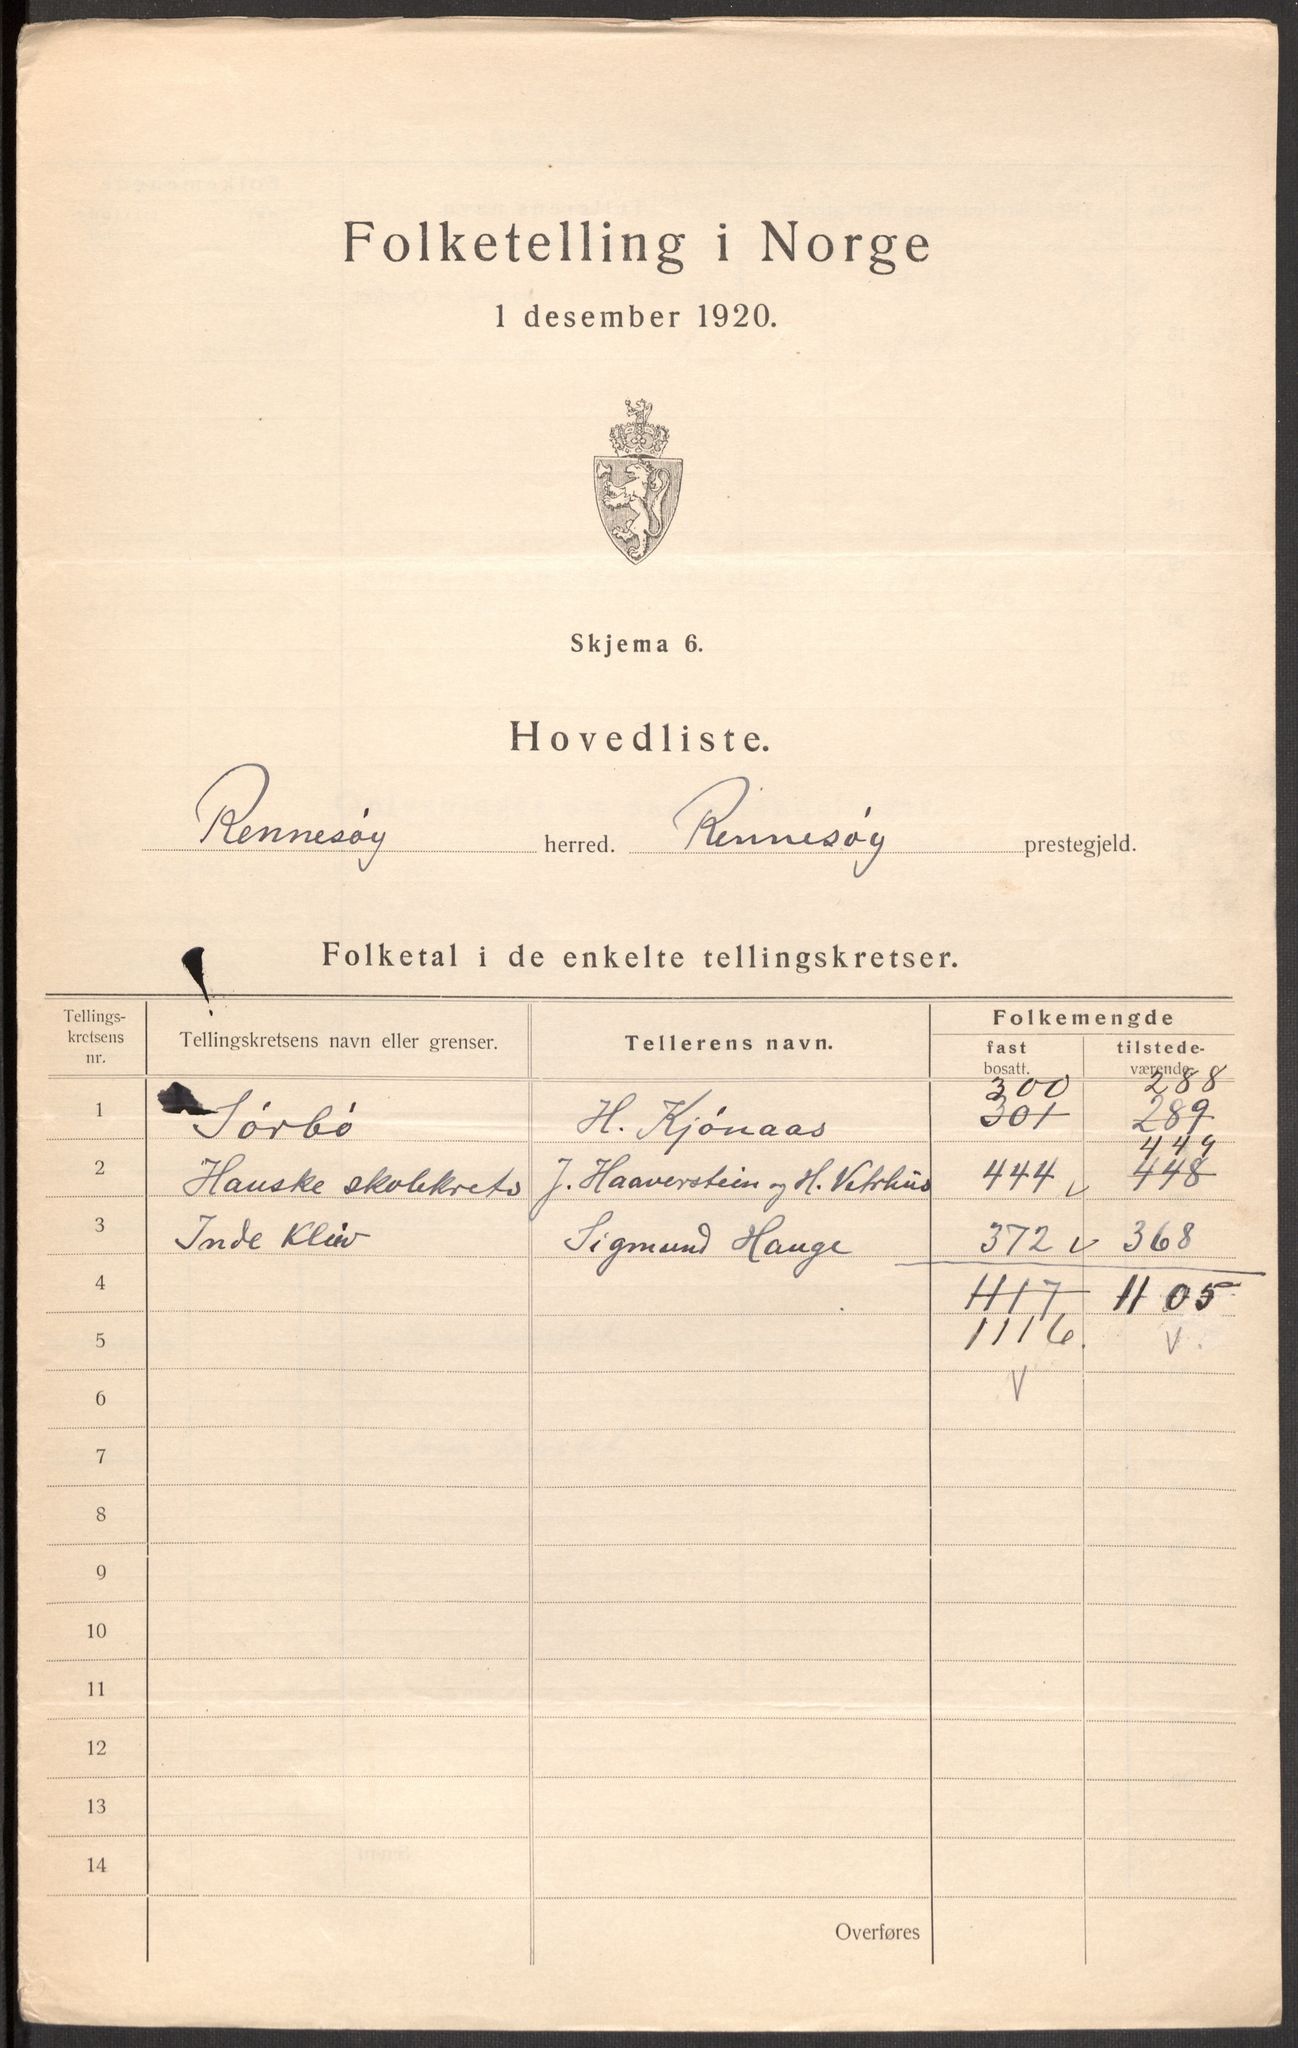 Folketelling i Norge
1 desember 1920.
Skjema 6.
Hovedliste.
Rennesøy herred. Rennesøy prestegjeld.
Folketal i de enkelte tellingskretser.
Tellings-
kretsens
nr.
Tellingskretsens navn eller grenser.
Tellerens navn.
Folkemengde
fast
bosatt.
tilstede-
værende.
300 288
1 Sørbø H. Kjønaas 301 289
449
2 Hauske skolekrets J. Haaverstein og H. Vetrhus 444 v 448
3 Inde Kleiv Sigmund Hauge 372 v 368
4 1117 1105
5 1116. v
6 v
7
8
9
10
11
12
13
14
Overføres